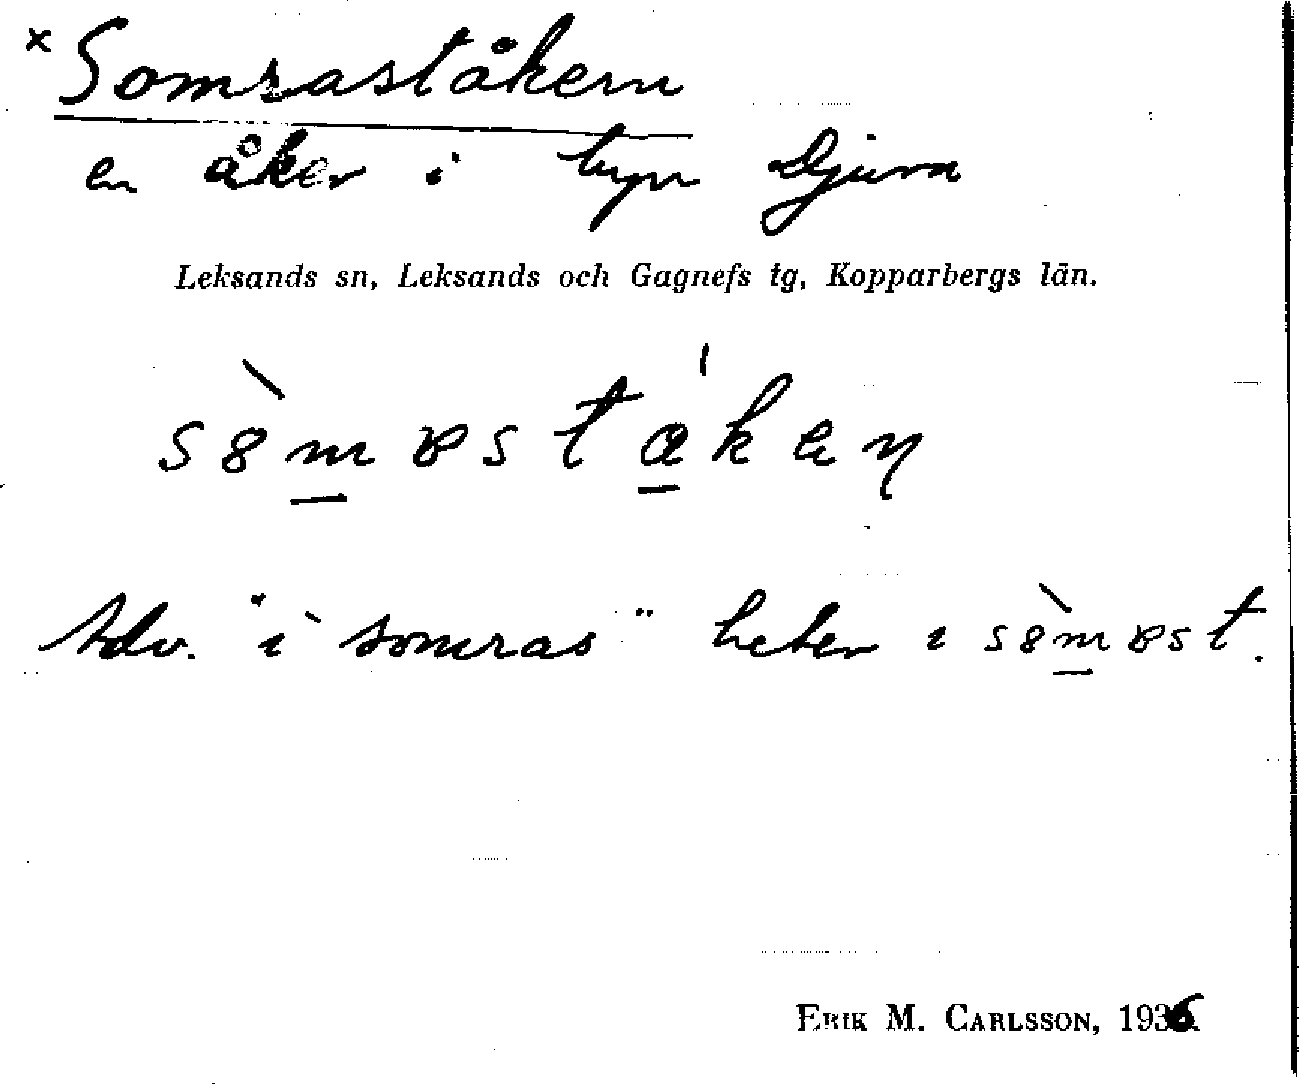 x Somraståkern
en åker i byn Djura
Leksands sn, Leksands och Gagnefs tg, Kopparbergs län.
Adv. "i somras" heter
ERIK M. CARLSSON, 1936